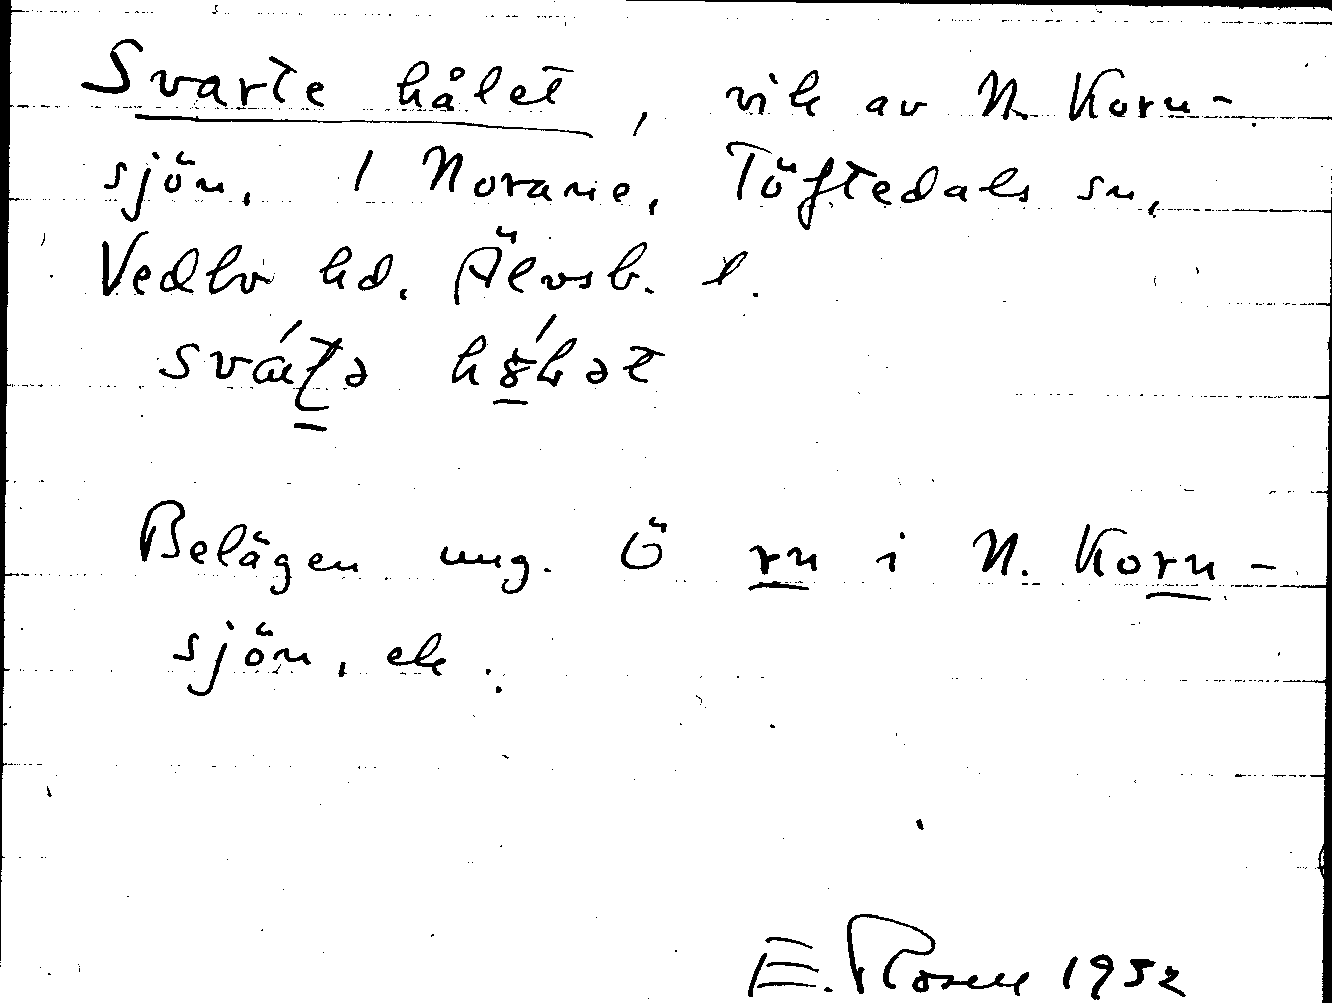 Svarte hålet, vik av N. Korn-
sjön, 1 Norane, Töftedals sn,
Vedbo hd. Älvsb. l.
Belägen ung. Ö rn i N. Korn-
sjön, ek.
E. Rosell 1952